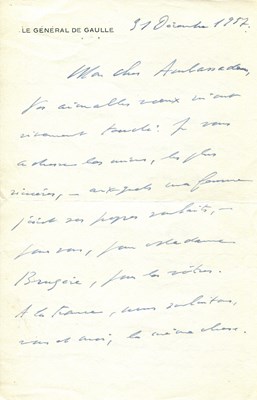 LE GÉNÉRAL DE GAULLE
31 Décembre 1957.
Mon cher Ambassadeur,
Vos aimables vœux m'ont
vivement touché. Je vous
adresse les miens, les plus
sincères, – auxquels ma femme
joint ses propres souhaits, –
pour vous, pour Madame
Brugère, pour les vôtres.
A la France, nous souhaitons,
vous et moi, la même chose.